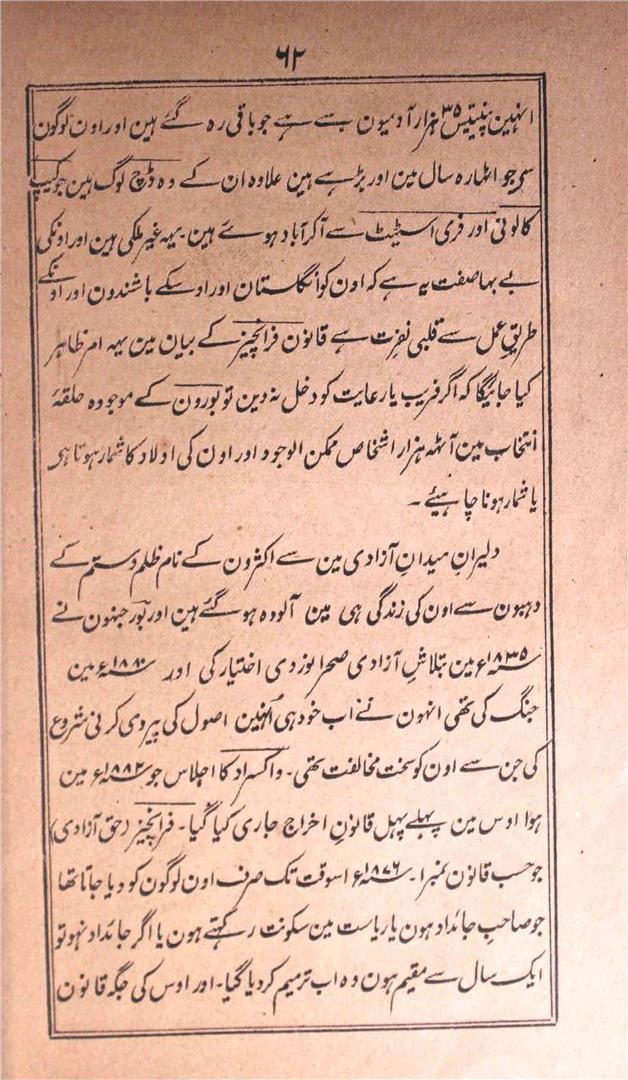 ۶۲
انہین پنتیس ۳۵ ہزار آدمیون سے ہے جو باقی رہ گئے ہین اور اون لوگون
سی جو اٹھارہ سال مین اور بڑہے ہین علاوہ ان کے وہ ڈچ لوگ ہین جو کیپ
کالونی اور فری اسٹیٹ سے آکر آباد ہوئے ہین ۔ یہہ غیر ملکی ہین اور اونکی
بے بہا صفت یہ ہے کہ اون کو انگلستان اور اوسکے باشندون اور اونکے
طریق عمل سے قلبی نفرت ہے قانون فرانچیز کے بیان مین یہہ امر ظاہر
کیا جائیگا کہ اگر فریب یا رعایت کو دخل نہ دین تو بورون کے موجودہ حلقۂ
انتخاب مین آٹھ ہزار اشخاص ممکن الوجود اور اون کی اولاد کا شمار ہوتا ہی
یا شمار ہونا چاہیئے ۔
دلیرانِ میدانِ آزادی مین سے اکثرون کے نام ظلم و ستم کے
دہبون سے اون کی زندگی ہی مین آلودہ ہو گئے ہین اور بور جنہون نے
۱۸۳۵ء مین بتلاشِ آزادی صحرانوردی اختیار کی اور ۱۸۸۰ء مین
جنگ کی تھی انہون نے اب خود ہی اُنہین اصول کی پیروی کرنی شروع
کی جن سے اون کو سخت مخالفت تھی ۔ واکسراد کا اجلاس جو ۱۸۸۲ء مین
ہوا اوس مین پہلے پہل قانونِ اخراج جاری کیا گیا ۔ فرانچیز (حق آزادی)
جو حسب قانون نمبر ۱ ۔ ۱۸۷۶ء اسوقت تک صرف اون لوگون کو دیا جاتا تھا
جو صاحبِ جائداد ہون یا ریاست مین سکونت رکہتے ہون یا اگر جائداد نہو تو
ایک سال سے مقیم ہون وہ اب ترمیم کر دیا گیا ۔ اور اوس کی جگہ قانون